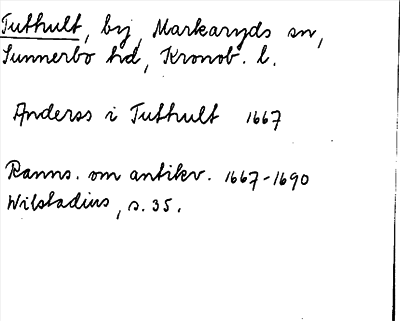 Tuthult, by, Markaryds sn,
Sunnerbo hd, Kronob. l.
Anders i Tuthult 1667
Ranns. om antikv. 1667-1690
Wilstadius, s. 35.